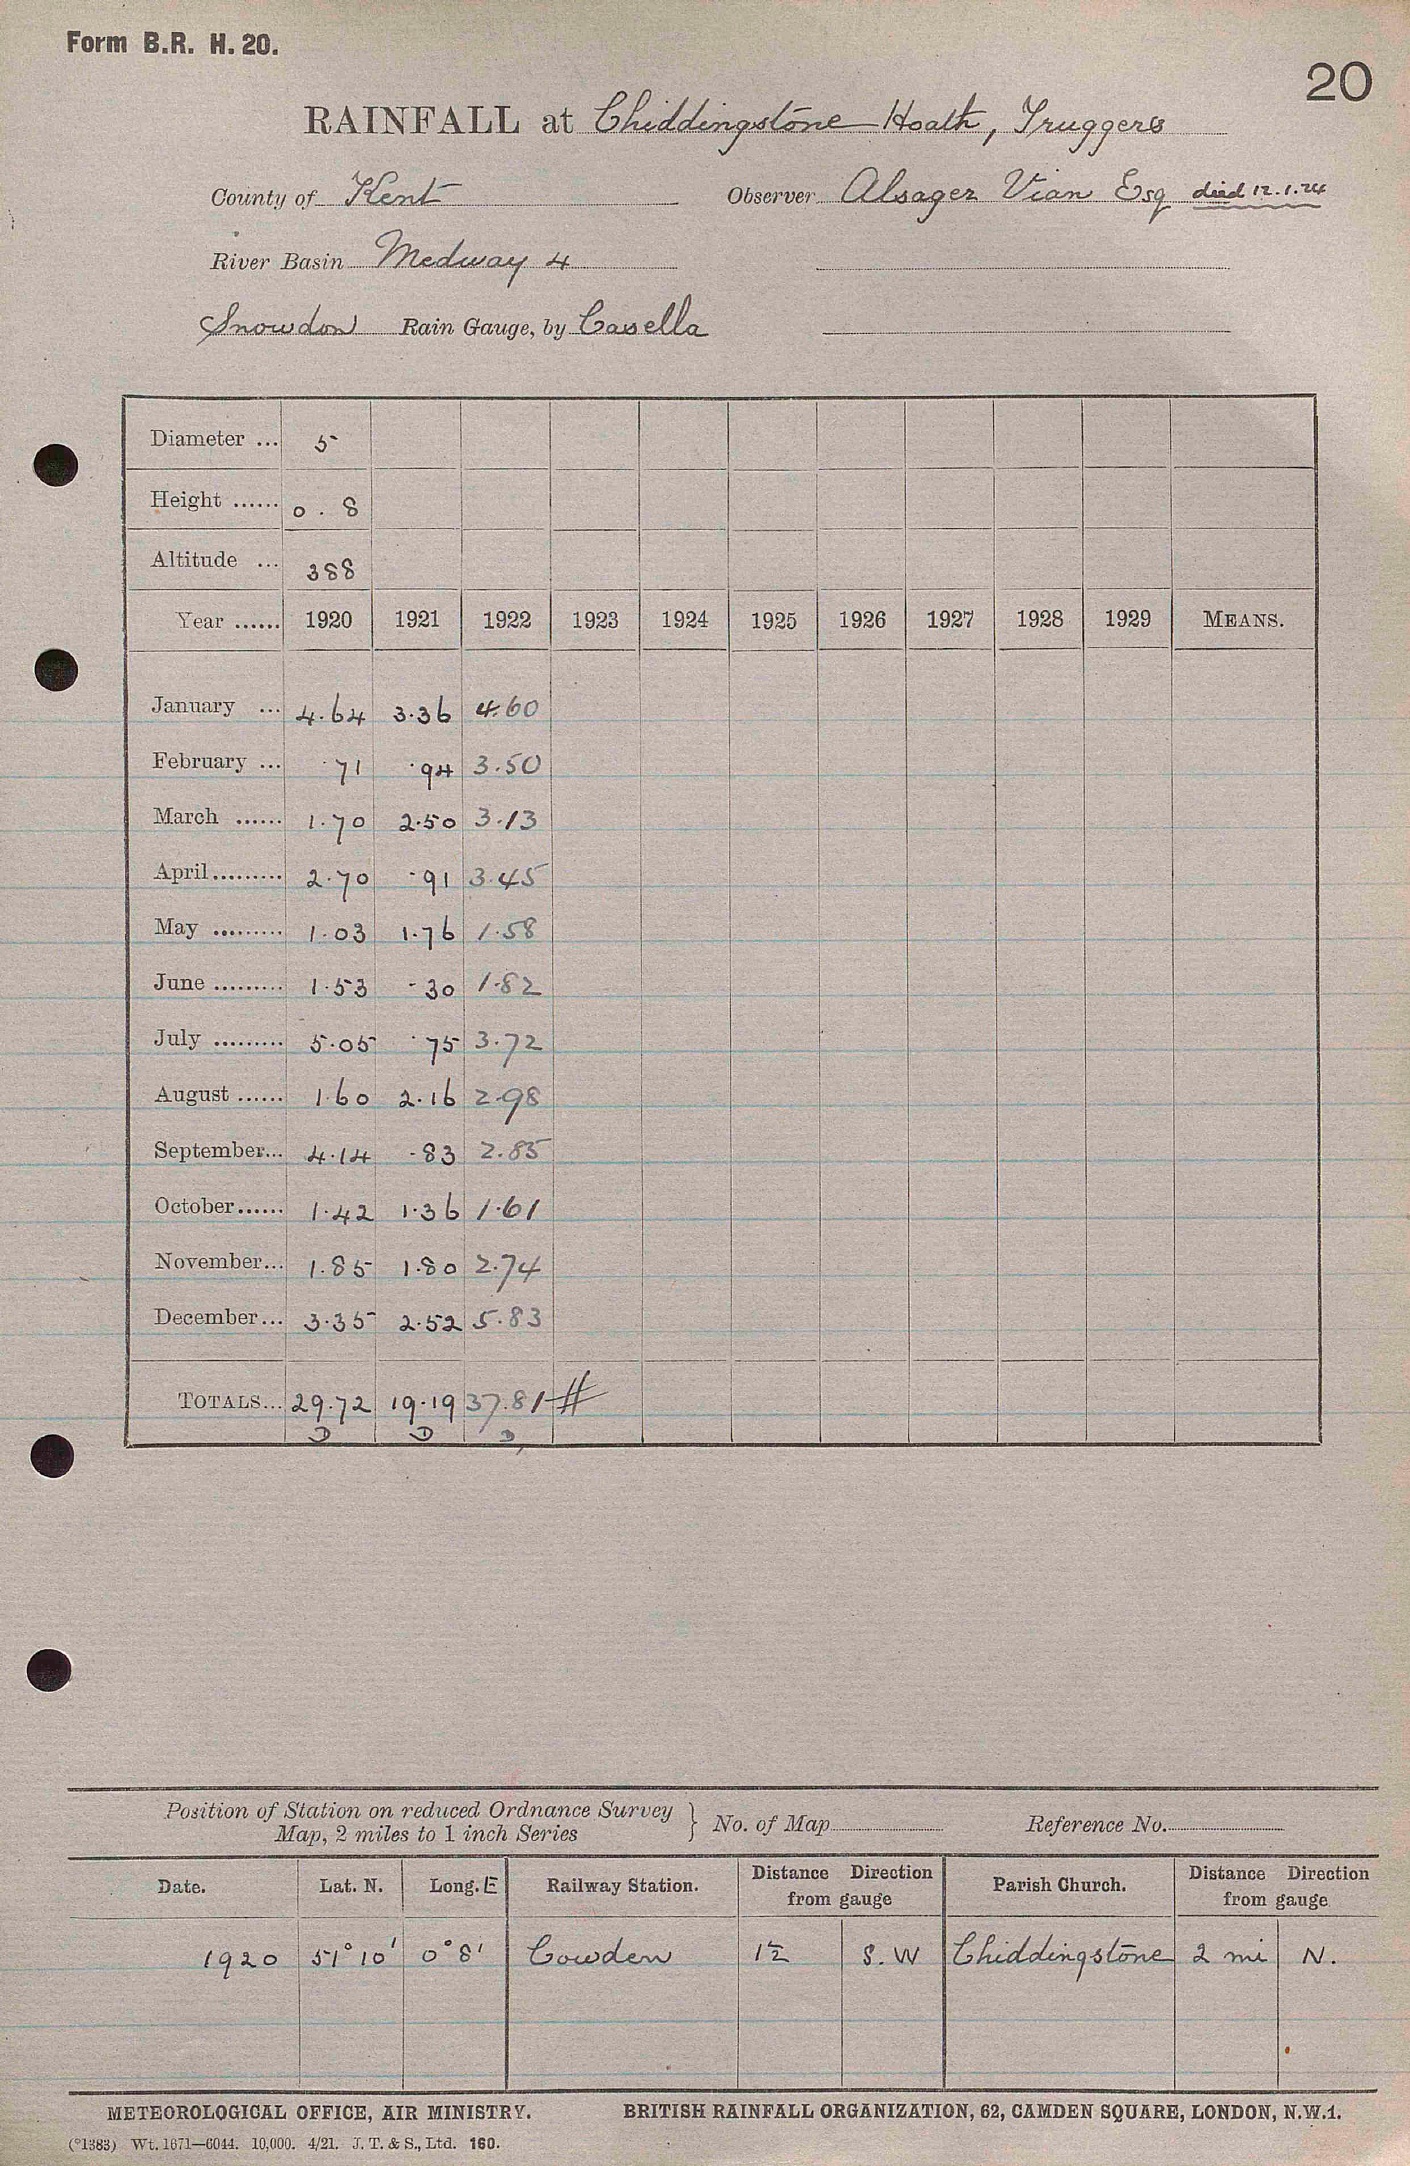 Form B.R. H. 20.
20
RAINFALL at Chiddingstone Hoath, Truggers
County of Kent Observer Alsager Vian Esq died 12.1.24
River Basin Medway 4
Snowdon Rain Gauge, by Casella
Diameter ... 5
Height ...... 0 . 8
Altitude ... 388
Year ...... 1920 1921 1922 1923 1924 1925 1926 1927 1928 1929 MEANS.
January ... 4.64 3.36 4.60
February ... .71 .94 3.50
March ...... 1.70 2.50 3.13
April......... 2.70 .91 3.45
May ......... 1.03 1.76 1.58
June ......... 1.53 .30 1.82
July ......... 5.05 .75 3.72
August ...... 1.60 2.16 2.98
September... 4.14 .83 2.85
October...... 1.42 1.36 1.61
November... 1.85 1.80 2.74
December... 3.35 2.52 5.83
TOTALS... 29.72 19.19 37.81 #
D D D
Position of Station on reduced Ordnance Survey
Map, 2 miles to 1 inch Series } No. of Map Reference No.
Date. Lat. N. Long. E Railway Station. Distance Direction from gauge Parish Church. Distance Direction from gauge
1920 51° 10' 0° 8' Cowden 1½ S. W Chiddingstone 2 mi N.
METEOROLOGICAL OFFICE, AIR MINISTRY. BRITISH RAINFALL ORGANIZATION, 62, CAMDEN SQUARE, LONDON, N.W.1.
(*1383) Wt. 1671—6044. 10,000. 4/21. J. T. & S., Ltd. 160.